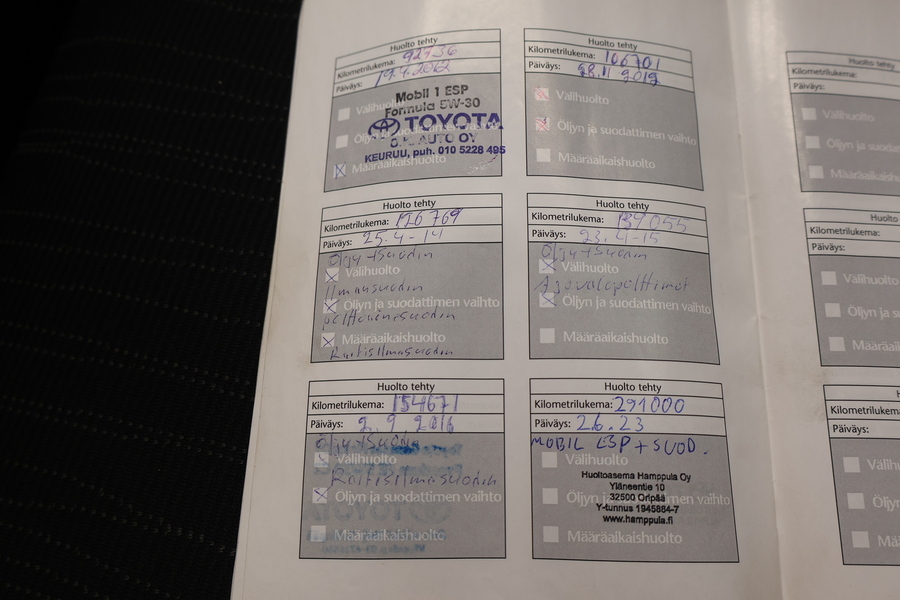 Huolto tehty
Kilometrilukema: 92736
Päiväys: 19.4.2012
Mobil 1 ESP
Välihuolto
Formula 5W-30
TOYOTA
AUTO OY
KEURUU, puh. 010 5228 495
Määräaikaishuolto
Huolto tehty
Kilometrilukema: 106701
Päiväys: 28.11 2012
Välihuolto
Öljyn ja suodattimen vaihto
Määräaikaishuolto
Huolto tehty
Kilometrilukema: 126769
Päiväys: 25.4-14
Öljy+Suodin
Välihuolto
Ilmansuodin
Öljyn ja suodattimen vaihto
polttoainesuodin
Määräaikaishuolto
Raitisilmasuodin
Huolto tehty
Kilometrilukema: 139055
Päiväys: 23.4-15
Öljy+Suodin
Välihuolto
Ajovalopolttimot
Öljyn ja suodattimen vaihto
Määräaikaishuolto
Huolto tehty
Kilometrilukema: 154671
Päiväys: 2.9.2016
Öljy+Suodin
Välihuolto
Raitisilmasuodin
Öljyn ja suodattimen vaihto
Määräaikaishuolto
Huolto tehty
Kilometrilukema: 291000
Päiväys: 26.23
MOBIL ESP + SUOD.
Välihuolto
Huoltoasema Hamppula Oy
Yläneentie 10
32500 Oripää
Öljyn ja suodattimen vaihto
Y-tunnus 1945884-7
www.hamppula.fi
Määräaikaishuolto
Huolto
Kilometrilukema:
Päiväys:
Välihuolto
Öljyn ja suoda
Määräaikaish
Huolto
Kilometrilukema:
Päiväys:
Välihuolto
Öljyn ja suo
Määräaikais
H
Kilometrilukema:
Päiväys:
Välihuolto
Öljyn ja s
Mää